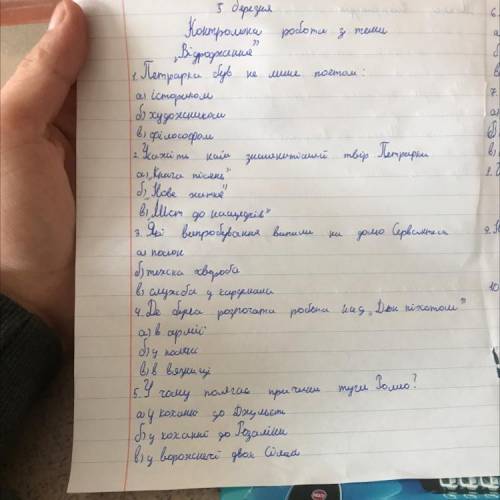 5 березня
Контрольна робота з теми
„Відродження"
1. Петрарка був не лише поетом:
а) істориком
б) художником
в) філософом
2. Укажіть найзнаменитіший твір Петрарки
а) „Книга пісень"
б) „Нове життя"
в) „Лист до нащадків"
3. Які випробування випали на долю Сервантеса
а) полон
б) тяжка хвороба
в) служба у кардинала
4. Де була розпочата робота над „Дон Кіхотом"
а) в армії
б) у полоні
в) в вязниці
5. У чому полягає причина туги Ромео?
а) у коханні до Джульєт
б) у коханні до Розаліни
в) у ворожнечі двох Сімей
6.
а)
б)
в)
7.
а)
б)
в)
8.
9.
10